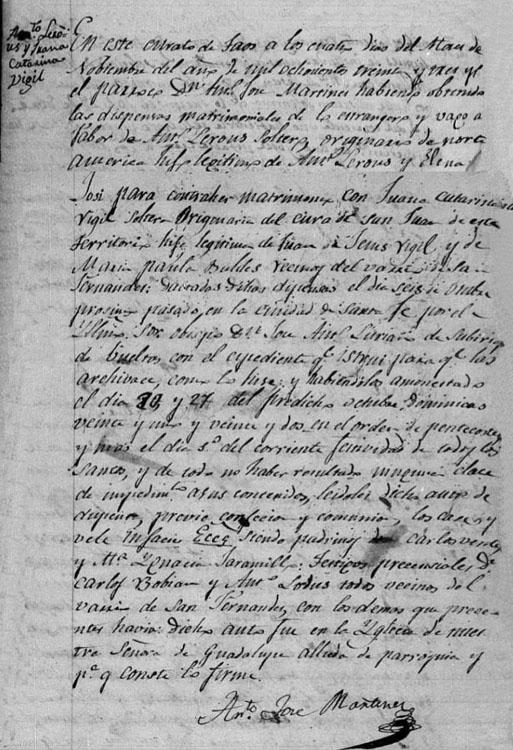 Anto Lero
us y Juana
Catarina
Vigil
En este curato de Taos a los cuatro dias del Mes de
Nobiembre del año de mil ochocientos treinta y tres yo
el parroco Dn Anto Jose Martinez habiendo obtenido
las dispensas matrimoniales de los estrangeros y vagos a
fabor de Anto Lerous soltero originario de norte
america hijo legitimo de Anto Lerous y Elena
Josi para contraher matrimonio con Juana Catarina
Vigil soltera originaria del cura de San Juan de este
territorio hija legitima de Juan de Jesus Vigil y de
Maria Paula Baldes vecinos del varrio de San
Fernandez; dichas dispensas el dia seis de
proximo pasado, en la ciudad de Santa fe por el
Yllmo Sor obispo Dn Jose Anto Lauriano de Subiria
de bueltos con el espediente qe istrui para qe los
archivace, como lo hise; y habiendolos amonestado
el dia 20 y 27 del predicho octubre, Dominicas
veinte y una y veinte y dos en el orden de pentecostes
y mas el dia 1o del corriente festividad de todos los
Santos, y de todo no haber resultado ninguna clace
de impedimto a sus concevidos, leidoles dicho auto de
dispensa, previo confecion y comunion, los case y
vele Infacie Eces siendo padrinos Dn carlos
y Ma Ygnacia Jaramillo: Testigos precenciales Dn
Carlos Bobian y Anto Lodus todos vecinos del
varrio de San Fernandez, con los demas que prece-
ntes havia: dicho auto fue en la Yglecia de nues
tra Señora de Guadalupe alluda de parroquia y
pa q conste lo firme.
Anto Jose Martinez